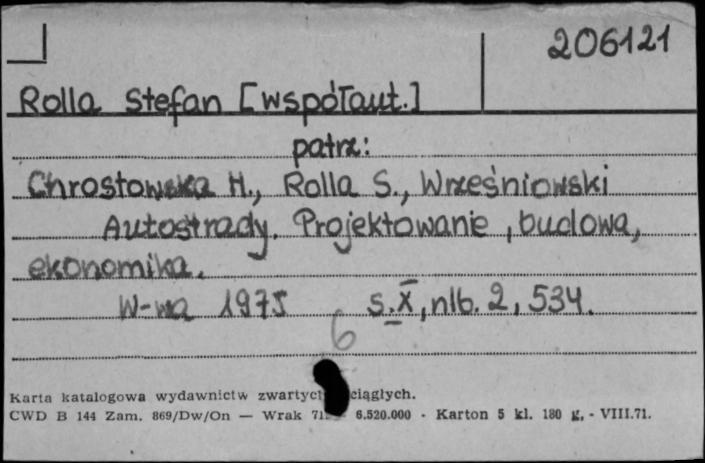 206121
Rolla Stefan [współaut.]
patrz:
Chrostowska H., Rolla S., Wrześniowski
Autostrady. Projektowanie, budowa,
ekonomika.
W-wa 1975 s. X, nlb. 2, 534.
6
Karta katalogowa wydawnictw ciągłych.
CWD B 144 Zam. 869/Dw/On — Wrak 6.520.000 - Karton 5 kl. 180 g. - VIII.71.